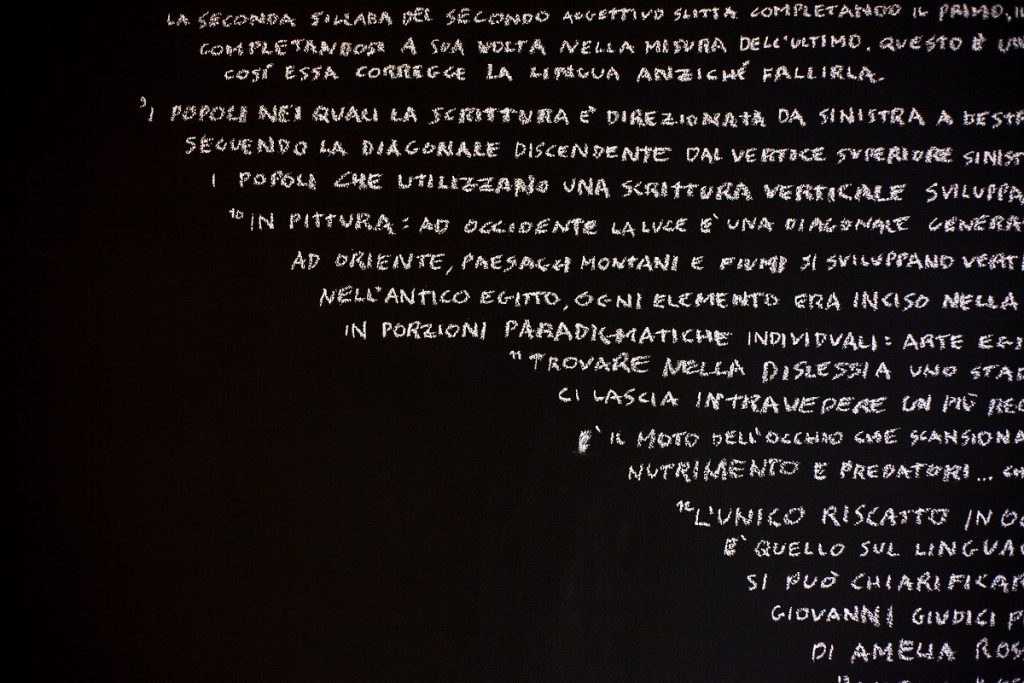 LA SECONDA SILLABA DEL SECONDO AGGETTIVO SLITTA COMPLETANDO IL PRIMO, IL
COMPLETANDOSI A SUA VOLTA NELLA MISURA DELL'ULTIMO. QUESTO È UN
COSÍ ESSA CORREGGE LA LINGUA ANZICHÉ FALLIRLA.
9 I POPOLI NEI QUALI LA SCRITTURA È DIREZIONATA DA SINISTRA A DESTR
SEGUENDO LA DIAGONALE DISCENDENTE DAL VERTICE SUPERIORE SINIST
I POPOLI CHE UTILIZZANO UNA SCRITTURA VERTICALE SVILUPPA
10 IN PITTURA: AD OCCIDENTE LA LUCE È UNA DIAGONALE GENERA
AD ORIENTE, PAESAGGI MONTANI E FIUMI SI SVILUPPANO VERTI
NELL'ANTICO EGITTO, OGNI ELEMENTO ERA INCISO NELLA
IN PORZIONI PARADIGMATICHE INDIVIDUALI: ARTE EGI
11 TROVARE NELLA DISLESSIA UNO STA
CI LASCIA INTRAVEDERE UN PIÙ
È IL MOTO DELL'OCCHIO CHE SCANSIONA
NUTRIMENTO E PREDATORI... CH
12 L'UNICO RISCATTO IN
È QUELLO SUL LINGUA
SI PUÒ CHIARIFICAR
GIOVANNI GIUDICI P
DI AMELIA ROS
13